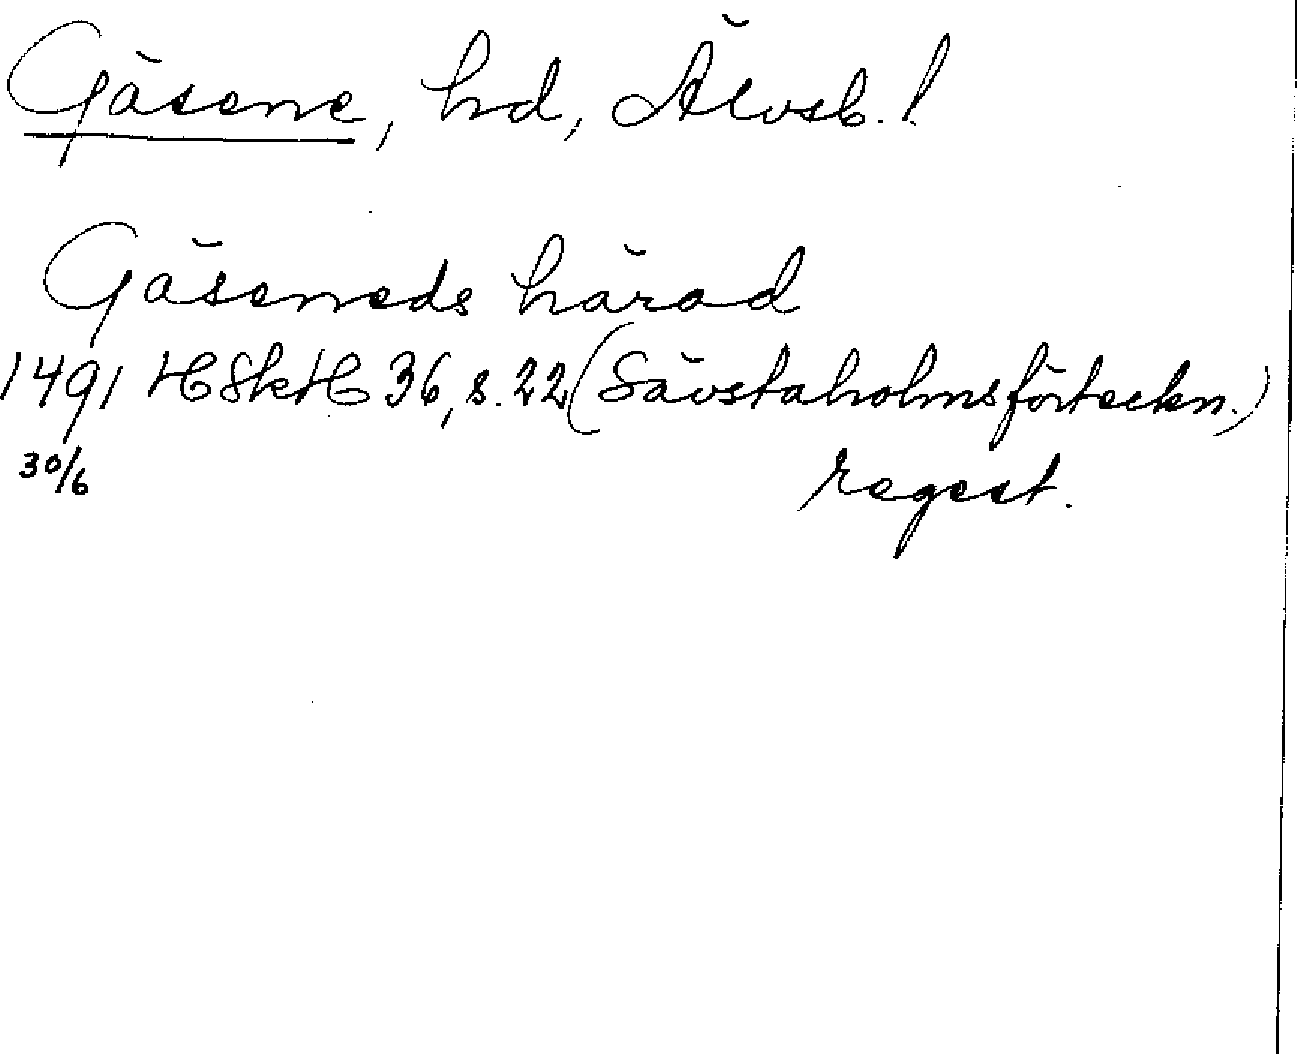 Gäsene, hd, Älvsb. l.
Gäseneds härad
1491 HSkH 36, s. 22 (Sävstaholmsförteckn.)
30/6 regest.